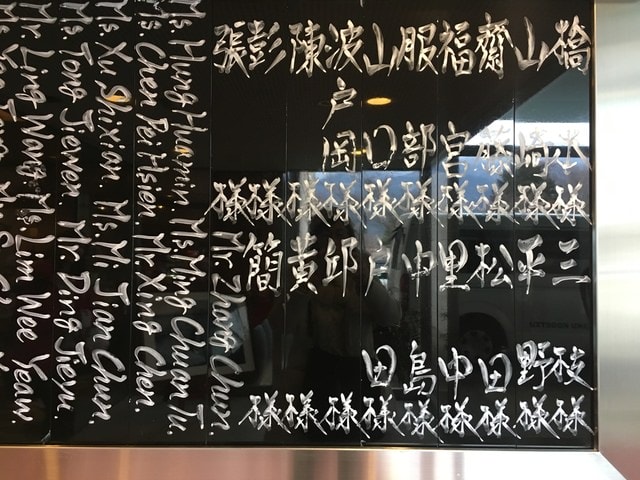 橋本様 三枝様
山崎様 平野様
齋藤様 松田様
福宮様 里中様
服部様 中島様
山口様 戸田様
波戸岡様 邱様
陳様 黄様
彭様 簡様
張様 Mr. Zhang Chun.
Ms. Hung Huamin Ms. Ming Chuan Tu.
Ms. Chen Pei Hsien. Mr. Xing Chen.
Ms. Xu Shuxian. Ms. Mi Jan Chun.
Ms. Tong Jiewen. Mr. Ding Jieyu.
Mr. Ling Wong. Ms. Lim Wee Yean.